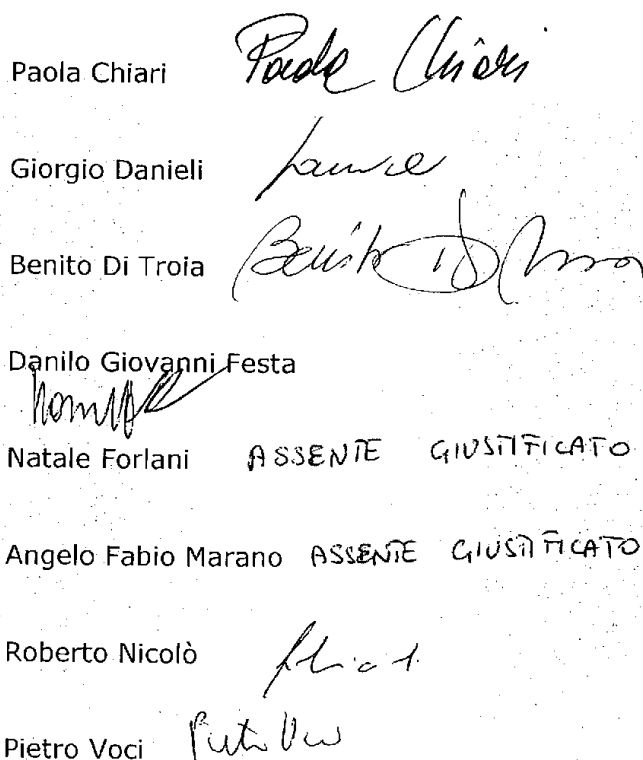 Paola Chiari Paola Chiari
Giorgio Danieli
Benito Di Troia Benito Di Troia
Danilo Giovanni Festa
Natale Forlani ASSENTE GIUSTIFICATO
Angelo Fabio Marano ASSENTE GIUSTIFICATO
Roberto Nicolò
Pietro Voci Pietro Voci